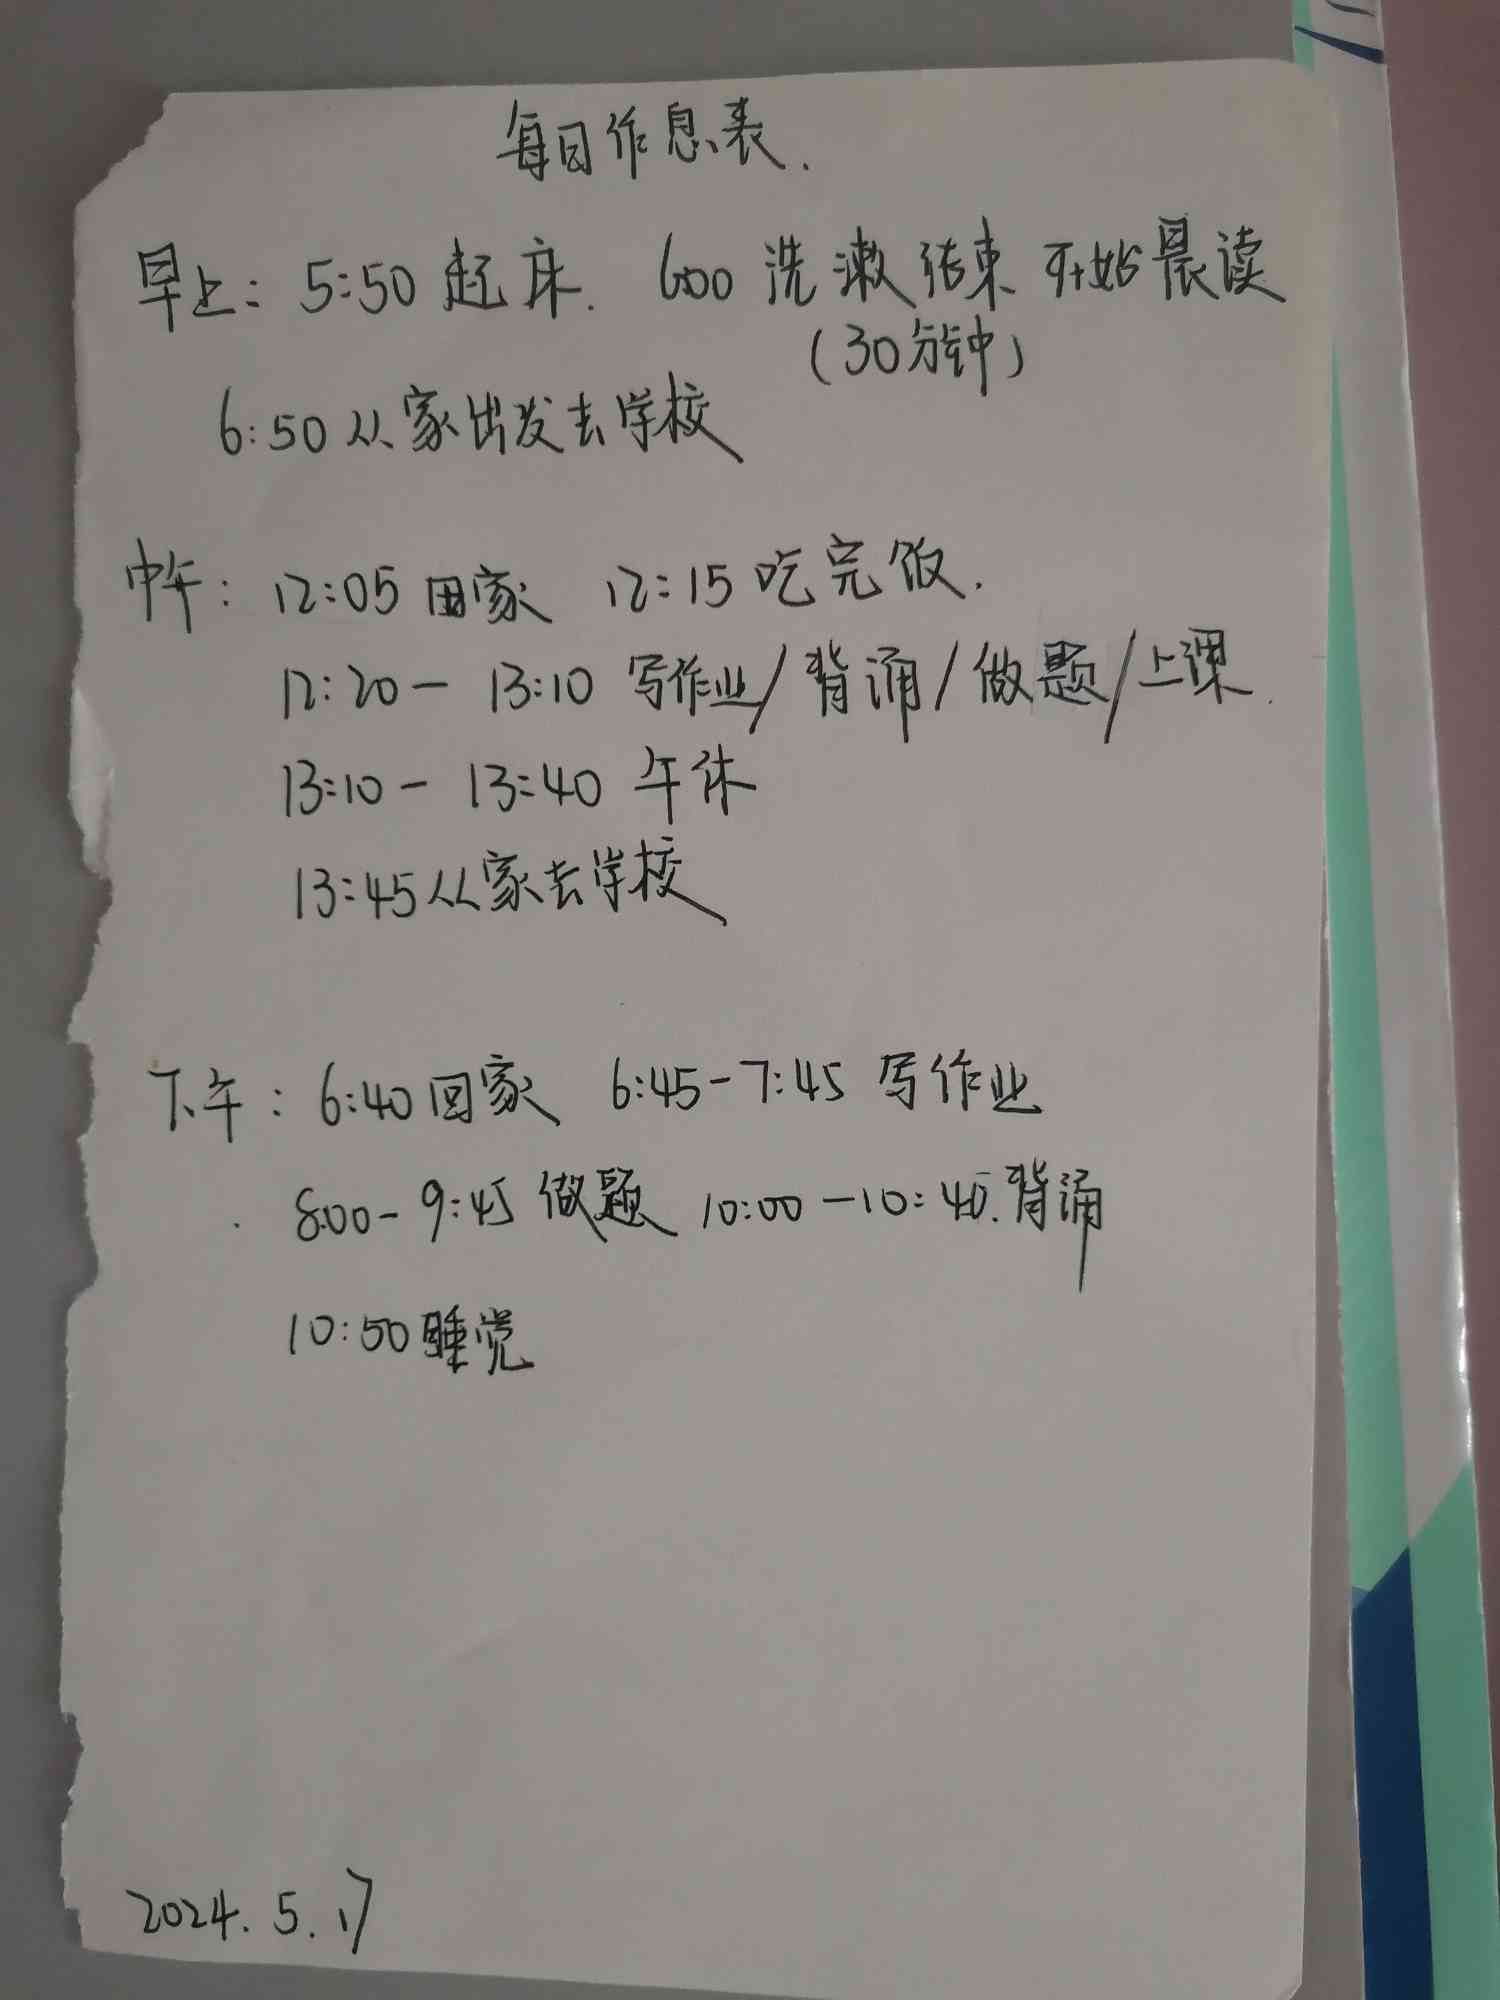 每日作息表.
早上: 5:50 起床. 6:00 洗漱结束 开始晨读
(30分钟)
6:50从家出发去学校
中午: 12:05 回家 12:15 吃完饭.
12:20－ 13:10 写作业/背诵/做题/上课.
13:10－ 13:40 午休
13:45从家去学校
下午: 6:40回家 6:45－7:45 写作业
8:00－9:45 做题 10:00－10:40.背诵
10:50睡觉
2024.5.17